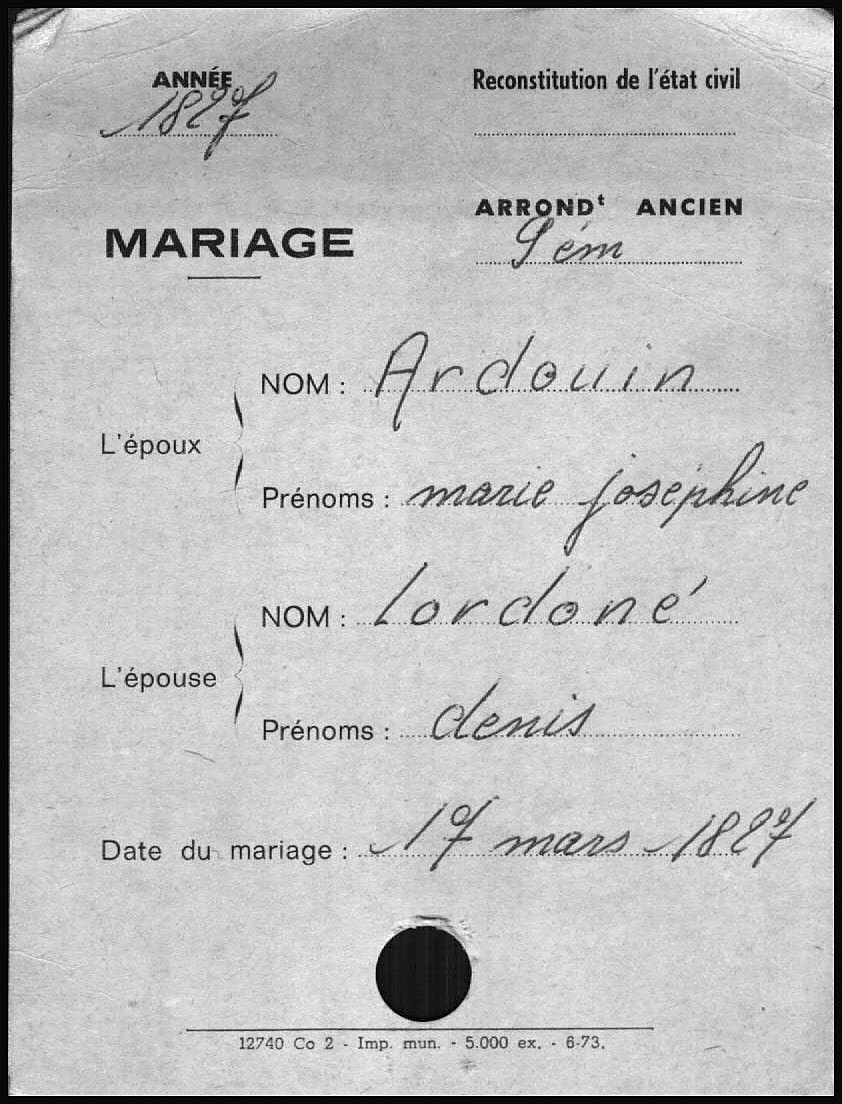 ANNÉE
1827
Reconstitution de l'état civil
ARRONDt ANCIEN
9ém
MARIAGE
L'époux
NOM : Ardouin
Prénoms : marie joséphine
L'épouse
NOM : Lordoné
Prénoms : denis
Date du mariage : 17 mars 1827
12740 Co 2 - Imp. mun. - 5.000 ex. - 6-73.